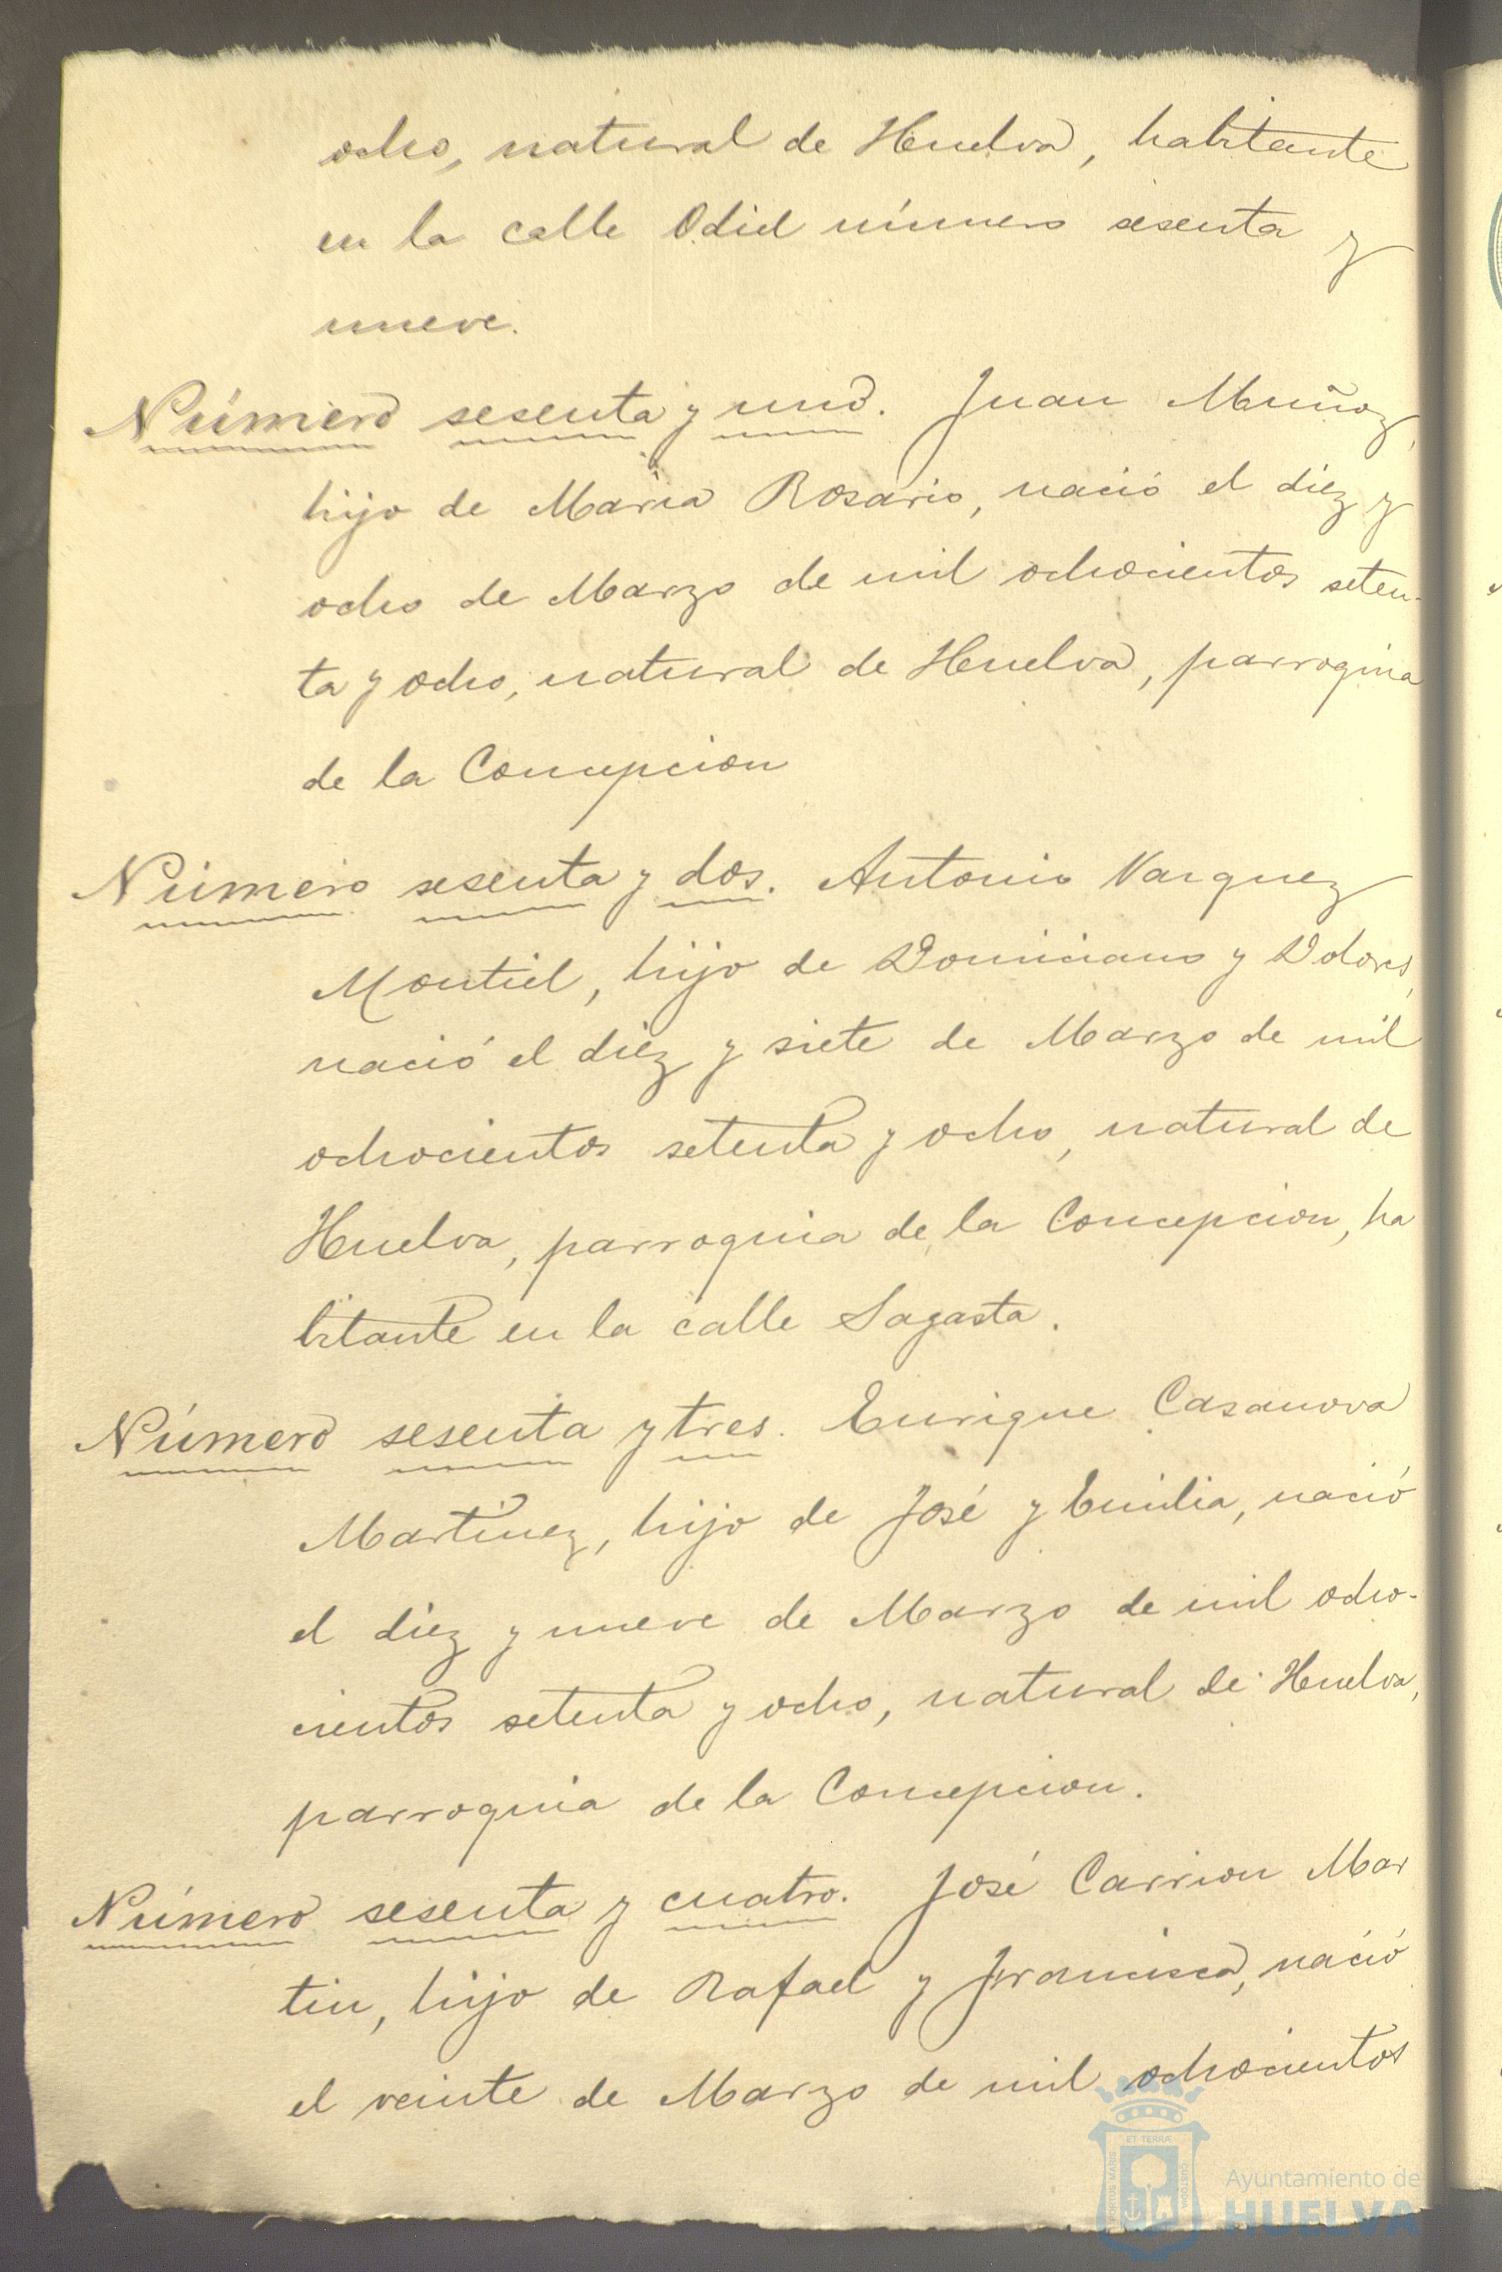 ocho, natural de Huelva, habitante
en la calle Odiel número sesenta y
nueve.
Número sesenta y uno. Juan Muñoz,
hijo de María Rosario, nació el diez y
ocho de Marzo de mil ochocientos seten-
ta y ocho, natural de Huelva, parroquia
de la Concepcion
Número sesenta y dos. Antonio Vazquez
Montiel, hijo de Domiciano y Dolores,
nació el diez y siete de Marzo de mil
ochocientos setenta y ocho, natural de
Huelva, parroquia de la Concepcion, ha
bitante en la calle Sagasta.
Número sesenta y tres. Enrique Casanova
Martinez, hijo de José y Emilia, nació
el diez y nueve de Marzo de mil ocho-
cientos setenta y ocho, natural de Huelva,
parroquia de la Concepcion.
Número sesenta y cuatro. José Carrion Mar
tin, hijo de Rafael y Francisca, nació
el veinte de Marzo de mil ochocientos
ET TERRÆ
Ayuntamiento de
HUELVA